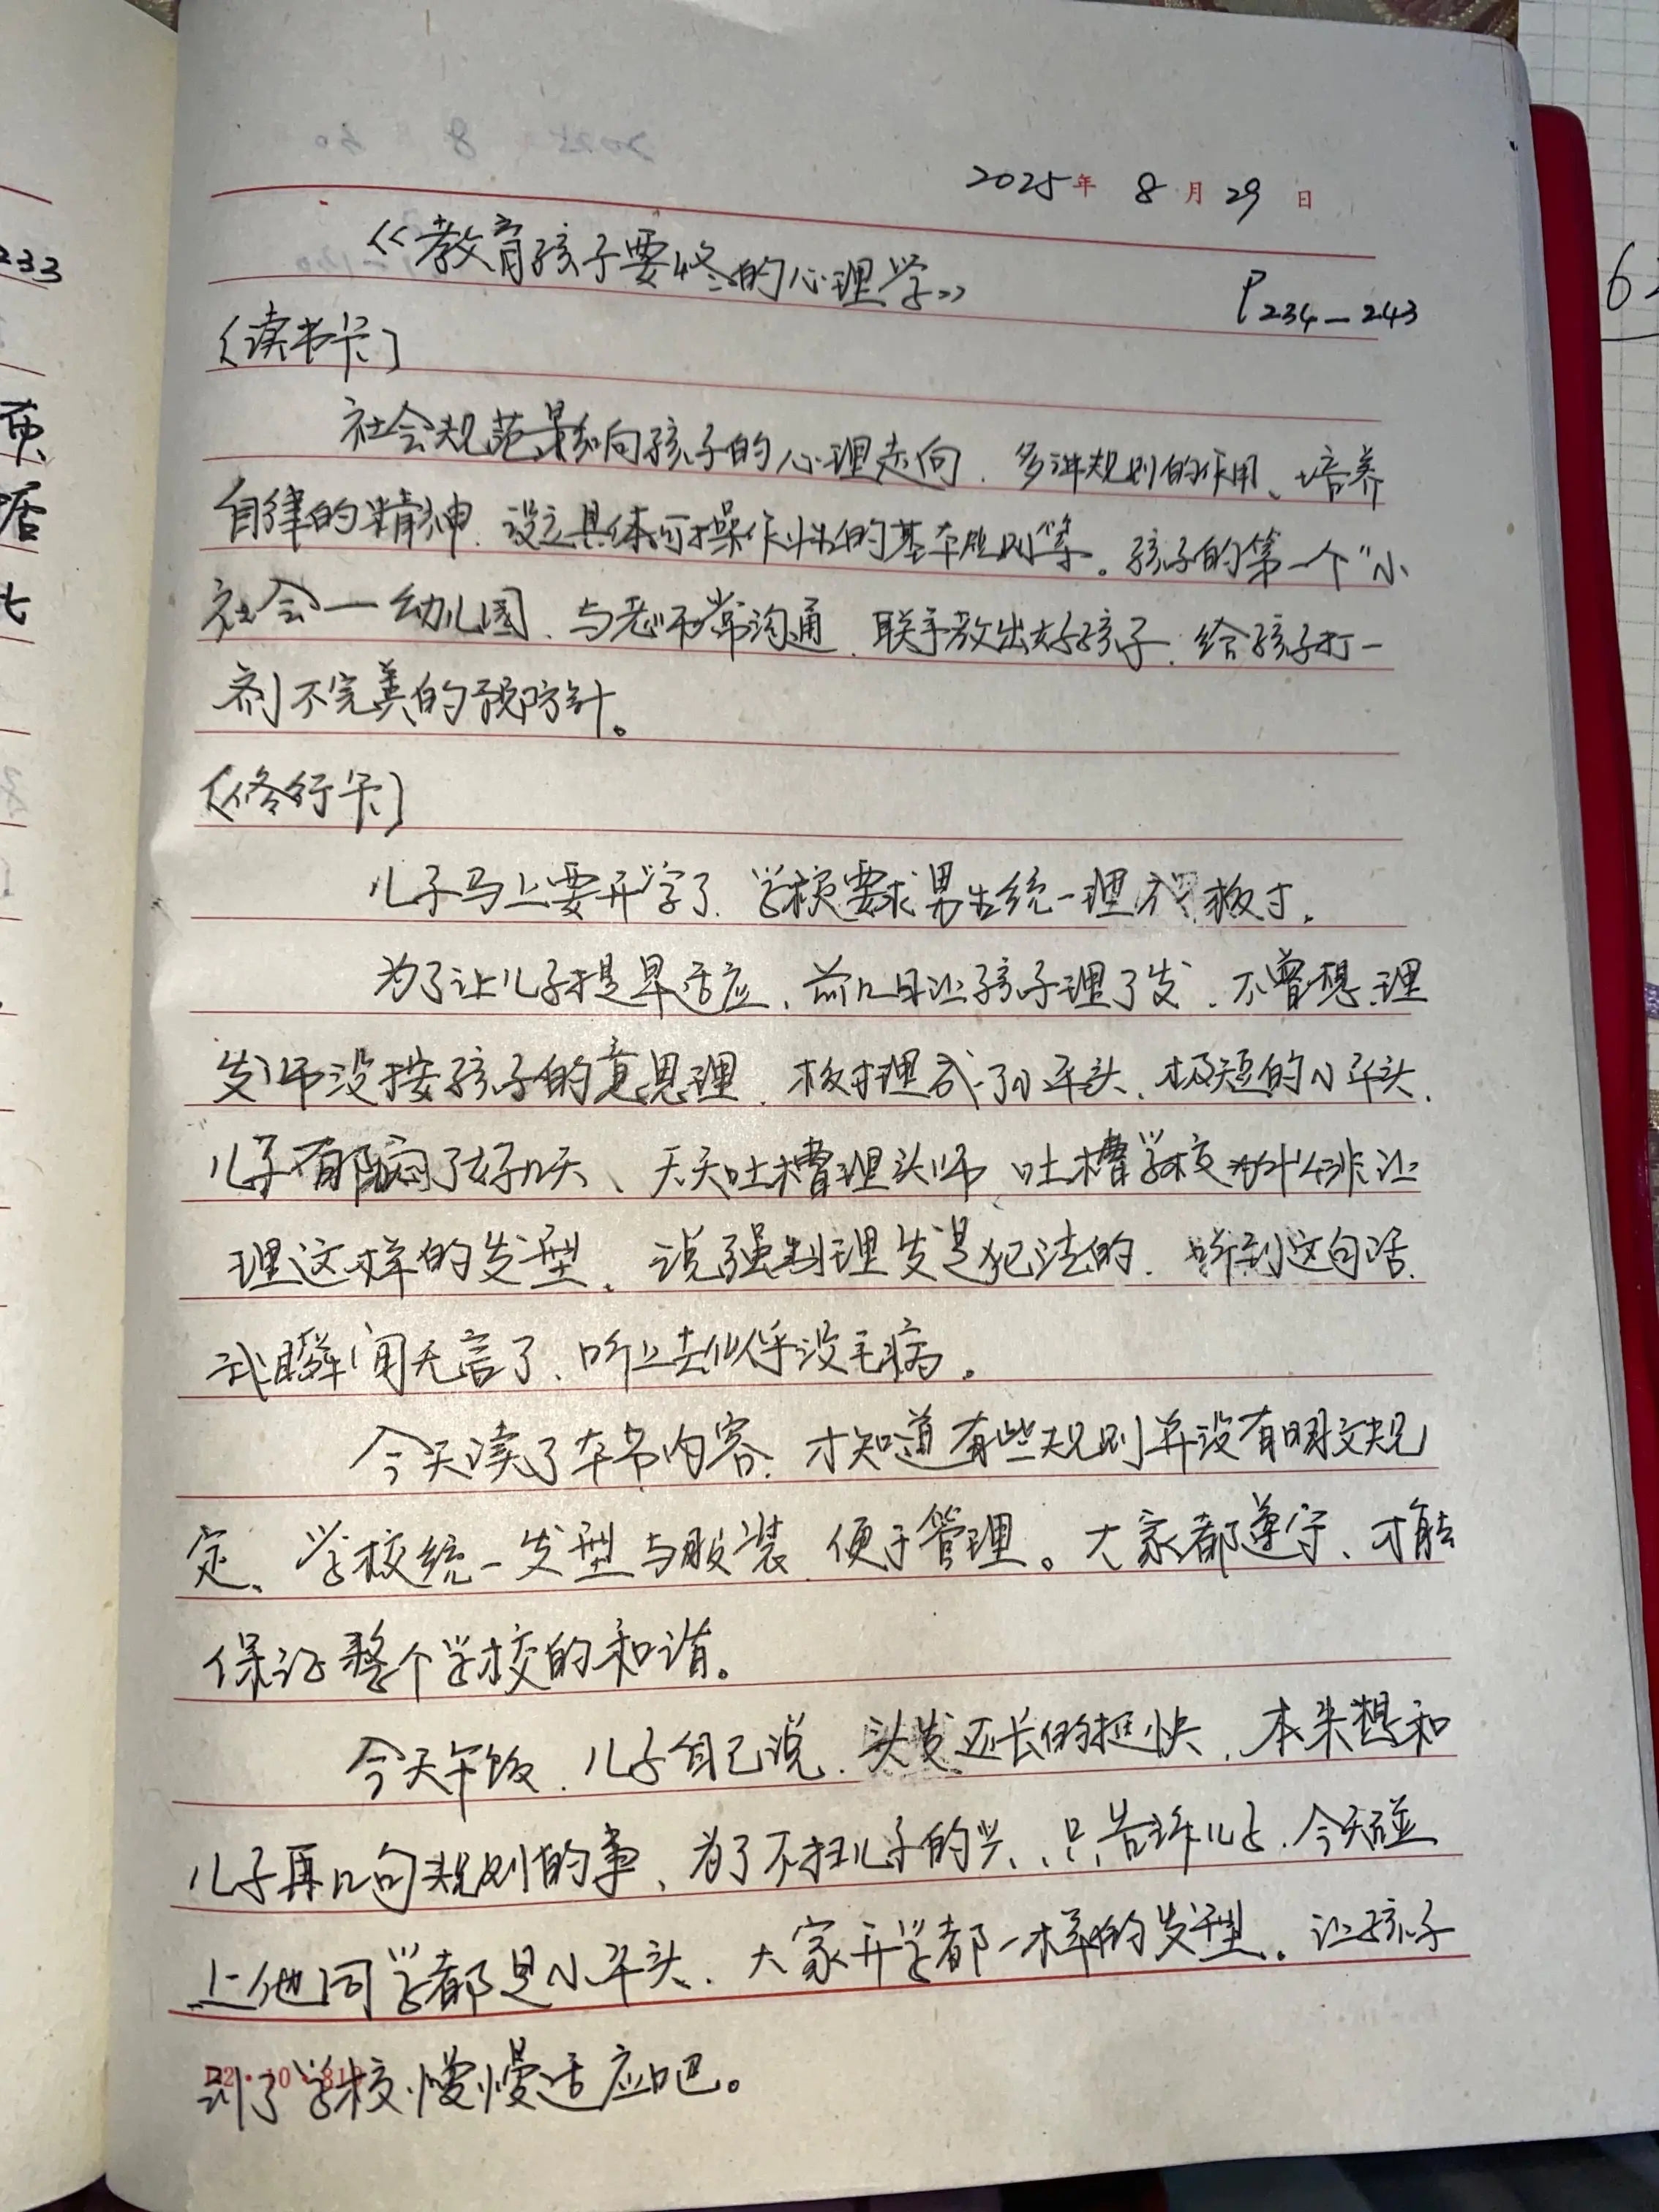 2025年 8月 29日
《教育孩子要修的心理学》 P234—243
233
〔读书卡〕
社会规范影响孩子的心理走向、多讲规则的作用、培养
自律的精神、设立具体可操作性的基本规则等。孩子的第一个“小
社会—幼儿园、与老师常沟通、联手教出好孩子、给孩子打一
剂不完美的预防针。
〔修行卡〕
儿子马上要开学了、学校要求男生统一理 板寸。
为了让儿子提早适应、前几日让孩子理了发、不曾想、理
发师没按孩子的意思理、板寸理成了小平头、极短的小平头、
儿子郁闷了好几天、天天吐槽理头师、吐槽学校为什么非让
理这样的发型、说强制理发是犯法的、听到这句话、
我瞬间无言了、听上去似乎没毛病。
今天读了本节内容、才知道有些规则并没有明文规
定、学校统一发型与服装、便于管理。大家都遵守、才能
保证整个学校的和谐。
今天午饭、儿子自己说、头发还长的挺快、本来想和
儿子再几句规则的事、为了不扫儿子的兴、只告诉儿子、今天碰
上他同学都是小平头、大家开学都一样的发型。让孩子
到了学校慢慢适应吧。